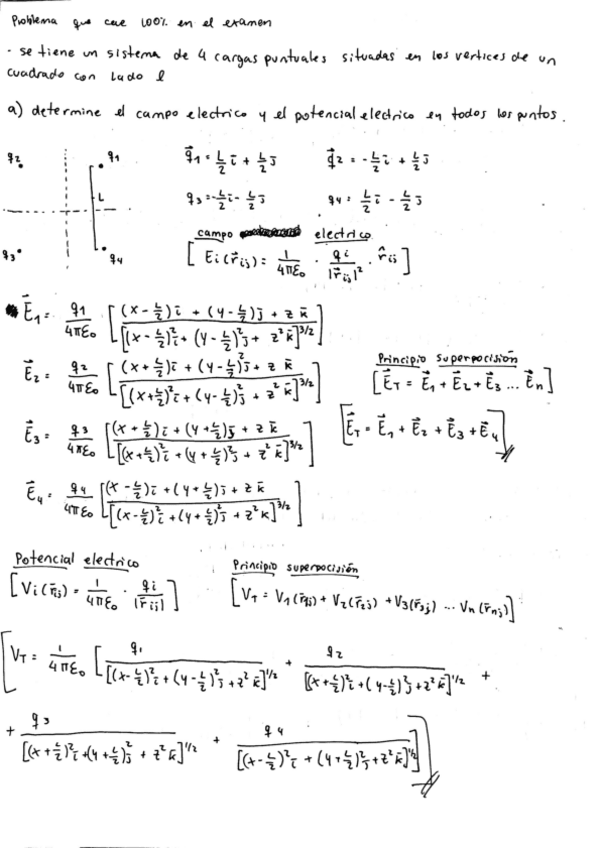 Problema que cae 100% en el examen
- se tiene un sistema de 4 cargas puntuales situadas en los vertices de un
cuadrado con lado l
a) determine el campo electrico y el potencial electrico en todos los puntos.
q2 q1 L q3 q4
q⃗1 = L/2 i + L/2 j    q⃗2 = -L/2 i + L/2 j
q3 = -L/2 i - L/2 j    q4 = L/2 i - L/2 j
campo electrico
[Ei(r⃗ij) = 1/4πε0 · qi/|r⃗ij|² · r̂ij]
E⃗1 = q1/4πε0 [(x - L/2)i + (y - L/2)j + z k / [(x - L/2)² i + (y - L/2)² j + z² k]^3/2]
E⃗2 = q2/4πε0 [(x + L/2)i + (y - L/2)j + z k / [(x + L/2)² i + (y - L/2)² j + z² k]^3/2]
E⃗3 = q3/4πε0 [(x + L/2)i + (y + L/2)j + z k / [(x + L/2)² i + (y + L/2)² j + z² k]^3/2]
E⃗4 = q4/4πε0 [(x - L/2)i + (y + L/2)j + z k / [(x - L/2)² i + (y + L/2)² j + z² k]^3/2]
Principio superpocisión
[E⃗T = E⃗1 + E⃗2 + E⃗3 ... E⃗n]
[E⃗T = E⃗1 + E⃗2 + E⃗3 + E⃗4]
Potencial electrico
[Vi(r⃗ij) = 1/4πε0 · qi/|r⃗ij|]
Principio superpocisión
[VT = V1(r⃗1j) + V2(r⃗2j) + V3(r⃗3j) ... Vn(r⃗nj)]
[VT = 1/4πε0 [q1 / [(x - L/2)² i + (y - L/2)² j + z² k]^1/2 + q2 / [(x + L/2)² i + (y - L/2)² j + z² k]^1/2 +
+ q3 / [(x + L/2)² i + (y + L/2)² j + z² k]^1/2 + q4 / [(x - L/2)² i + (y + L/2)² j + z² k]^1/2]]